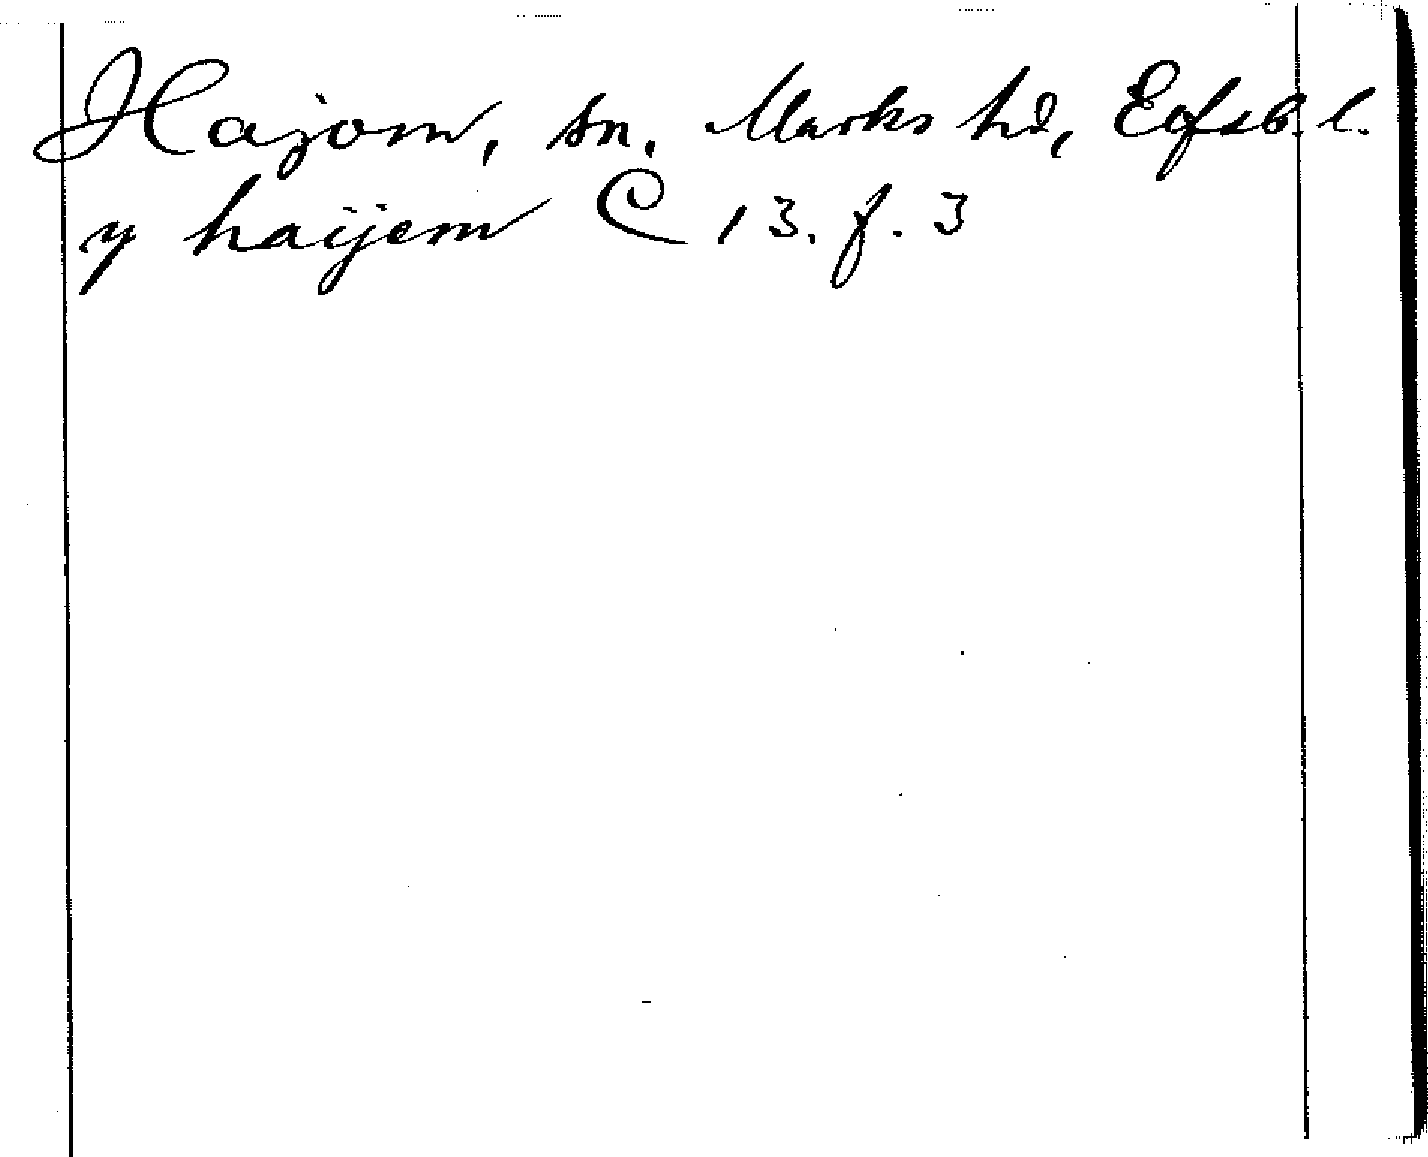 Hajom, sn. Marks hd, Elfsb. l.
y haijem C 13. f. 3